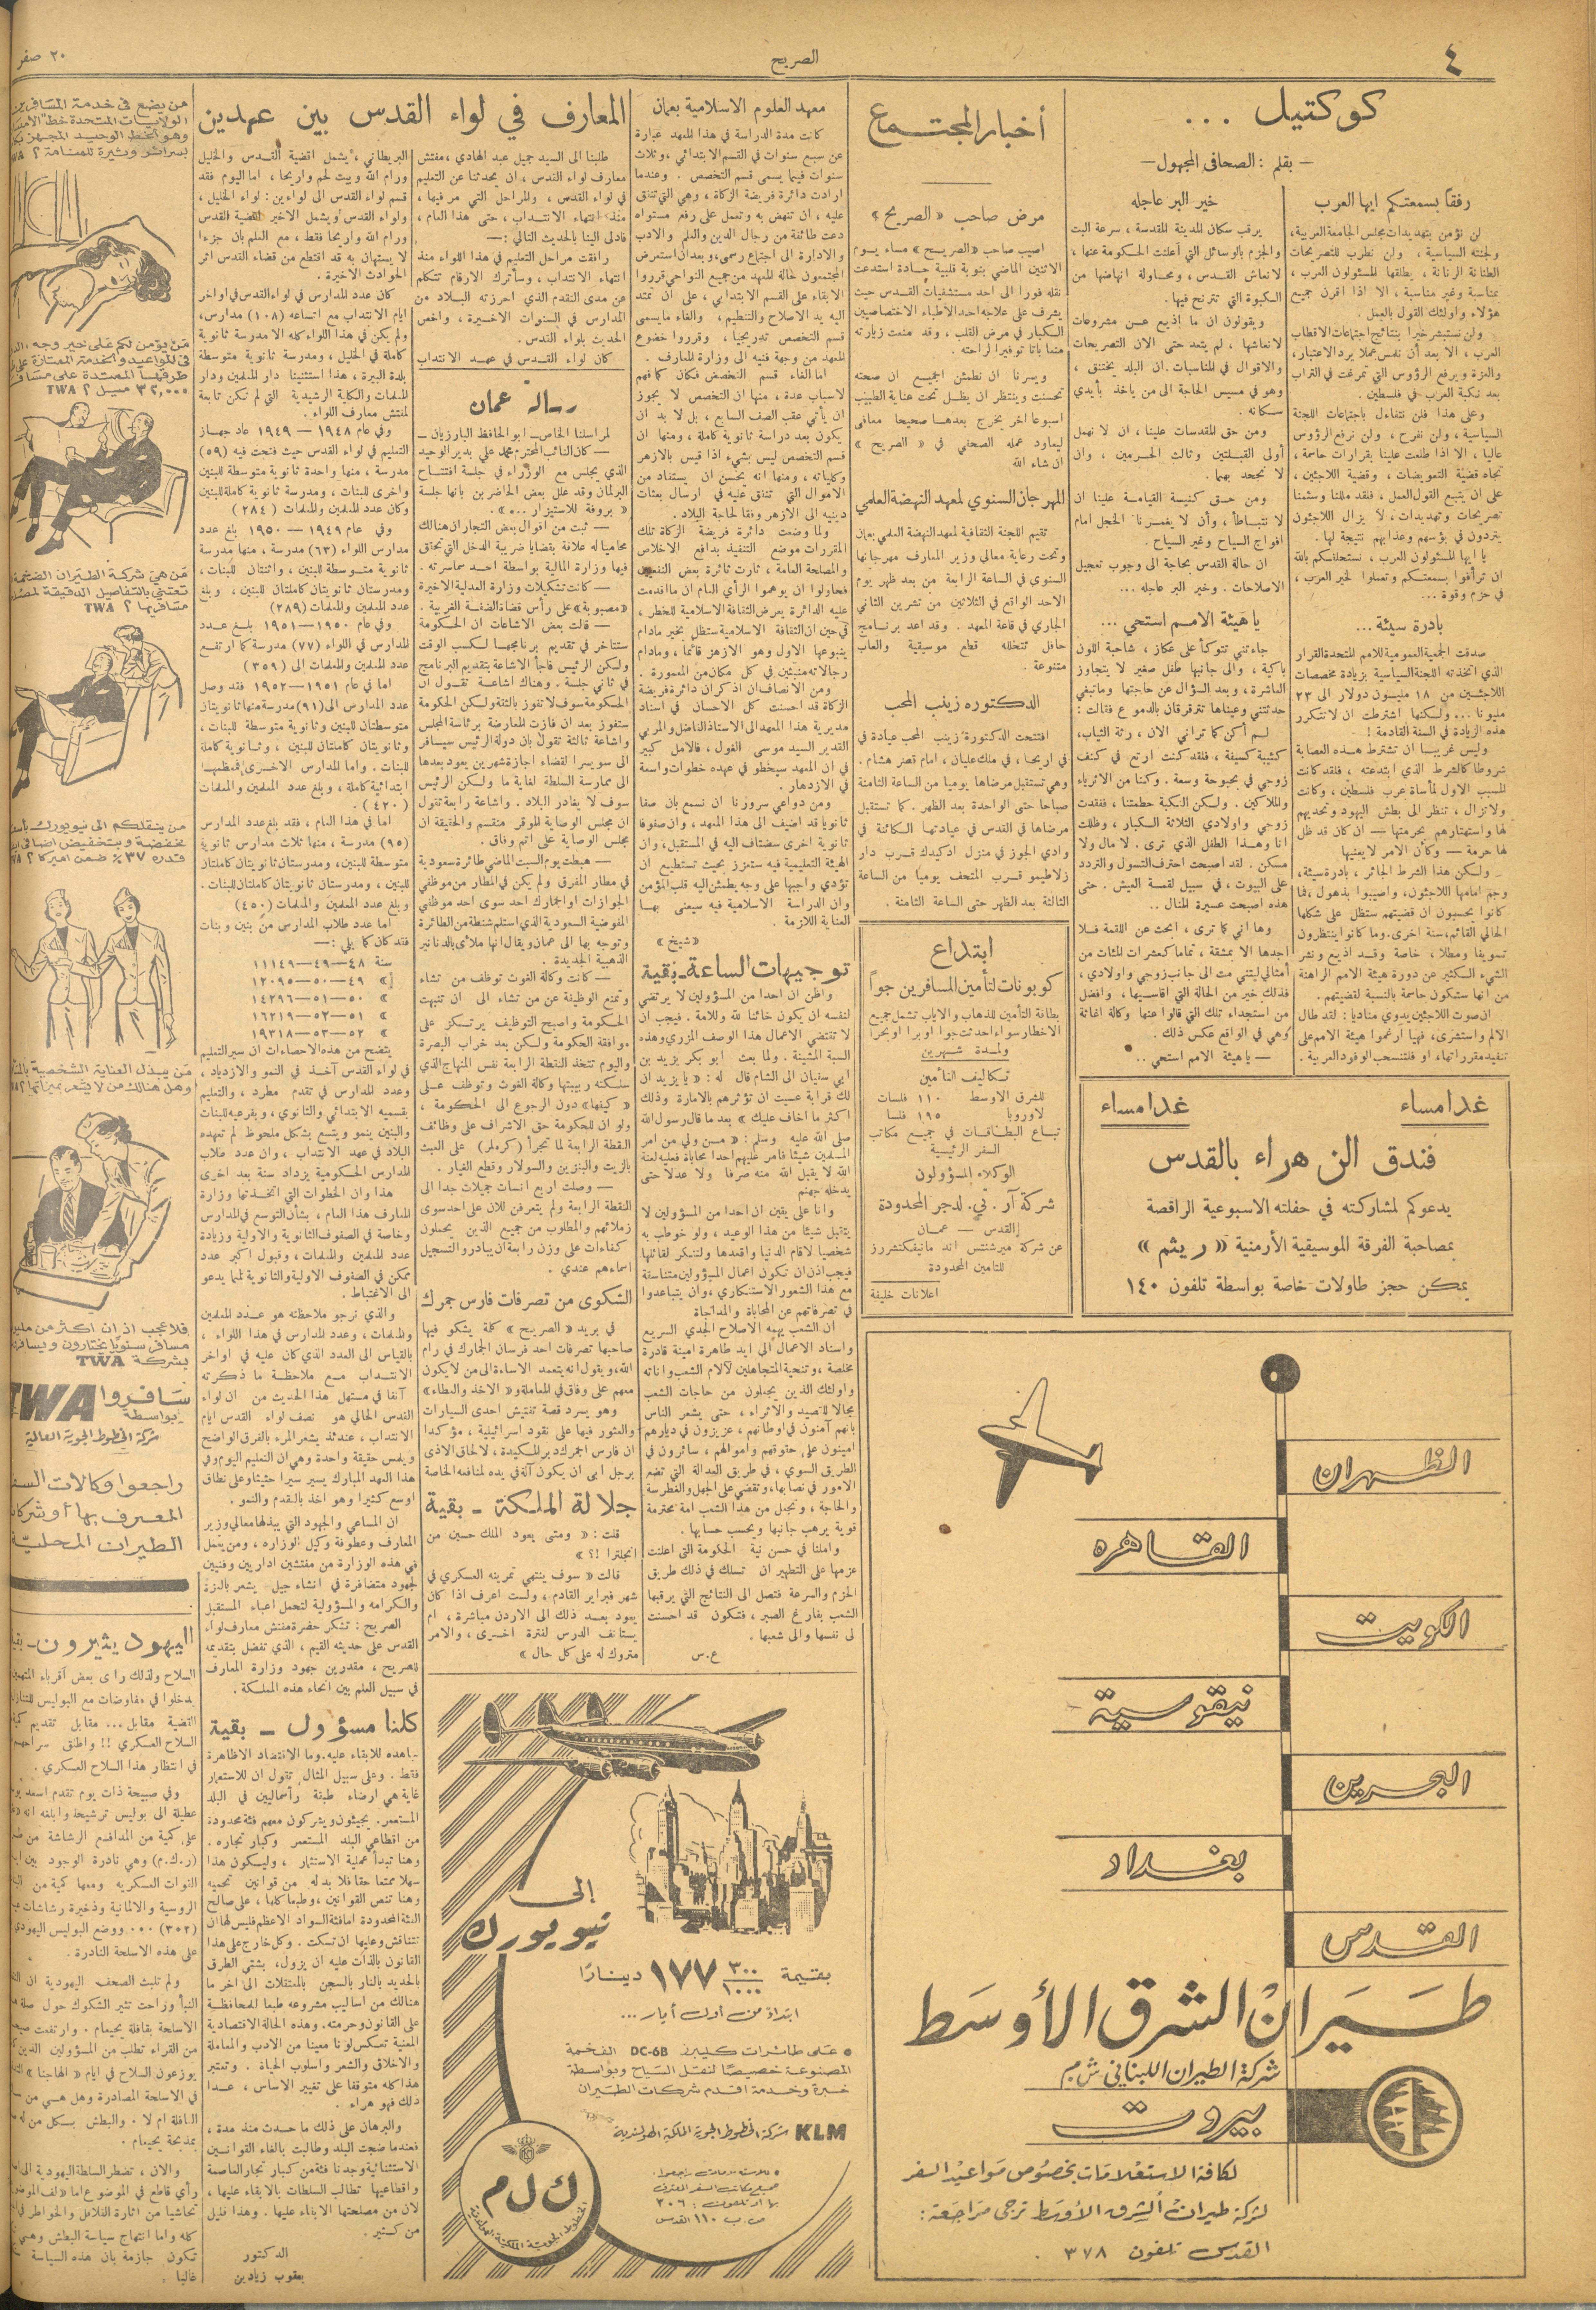 ٤
الصريح
٢٠ صفر
كوكتيل ...
— بقلم : الصحافي المجهول —
رفقاً بسمعتكم ايها العرب
لن نؤمن بتهديدات مجلس الجامعة العربية،
ولجنته السياسية ، ولن نطرب للتصريحات
الطنانة الرنانة ، يطلقها المسئولون العرب ،
بمناسبة وغير مناسبة ، الا اذا اقرن جميع
هؤلاء واولئك القول بالعمل .
ولن نستبشر خيرا بنتائج اجتماعات الاقطاب
العرب ، الا بعد أن نلمس عملا يرد الاعتبار،
والعزة ويرفع الرؤوس التي تمرغت في التراب
بعد نكبة العرب في فلسطين .
وعلى هذا فلن نتفاءل باجتماعات اللجنة
السياسية ، ولن نفرح ، ولن نرفع الرؤوس
عاليا ، الا اذا طلعت علينا بقرارات حاسمة ،
تجاه قضية التعويضات ، وقضية اللاجئين ،
على ان يتبع القول العمل ، فلقد مللنا وسئمنا
تصريحات وتهديدات ، لا يزال اللاجئون
يتردون في بؤسهم وعذابهم نتيجة لها .
يا ايها المسئولون العرب ، نستحلفكم بالله
ان ترأفوا بسمعتكم وتعملوا لخير العرب ،
في حزم وقوة ...
بادرة سيئة ...
صدقت الجمعية العمومية للامم المتحدة القرار
الذي اتخذته اللجنة السياسية بزيادة مخصصات
اللاجئين من ١٨ مليون دولار الى ٢٣
مليونا ... ولكنها اشترطت ان لا تتكرر
هذه الزيادة في السنة القادمة !
وليس غريبا ان تشترط هذه العصابة
شروطا كالشرط الذي ابتدعته ، فلقد كانت
المسبب الاول لمأساة عرب فلسطين ، وكانت
ولا تزال ، تنظر الى بطش اليهود وتحديهم
لها واستهتارهم بحرمتها — ان كان قد ظل
لها حرمة — وكأن الامر لا يعنيها
ولكن هذا الشرط الجائر ، بادرة سيئة،
وجم امامها اللاجئون، واصيبوا بذهول ، فما
كانوا يحسبون ان قضيتهم ستظل على شكلها
الحالي القائم، سنة اخرى . وما كانوا ينتظرون
تسويفا ومطلا ، خاصة وقد اذيع ونشر
الشيء الكثير عن دورة هيئة الامم الراهنة
من انها ستكون حاسمة بالنسبة لقضيتهم .
ان صوت اللاجئين يدوي مناديا : لقد طال
الالم واستشرى، فهيا ارغموا هيئة الامم على
تنفيذ مقرراتها، او فلتنسحب الوفود العربية .
خير البر عاجله
يرقب سكان المدينة المقدسة ، سرعة البت
والجزم بالوسائل التي أعلنت الحكومة عنها ،
لانعاش القدس ، ومحاولة انهاضها من
الكبوة التي تترنح فيها .
ويقولون ان ما اذيع عن مشروعات
لانعاشها ، لم يتعد حتى الان التصريحات
والاقوال في المناسبات . ان البلد يختنق ،
وهو في مسيس الحاجة الى من ياخذ بأيدي
سكانه .
ومن حق المقدسات علينا ، ان لا نهمل
أولى القبلتين وثالث الحرمين ، وان
لا نجحد بهما .
ومن حق كنيسة القيامة علينا ان
لا نتباطأ ، وأن لا يغمرنا الخجل امام
افواج السياح وغير السياح .
ان حالة القدس بحاجة الى وجوب تعجيل
الاصلاحات . وخير البر عاجله ...
يا هيئة الامم استحي ...
جاءتني تتوكأ على عكاز ، شاحبة اللون
باكية ، والى جانبها طفل صغير لا يتجاوز
العاشرة ، وبعد السؤال عن حاجتها وماتبغي
حدثتني وعيناها تترقرقان بالدموع فقالت :
لم أكن كما تراني الان ، رثة الثياب،
كئيبة كسيفة ، فلقد كنت ارتع في كنف
زوجي في بحبوحة وسعة . وكنا من الاثرياء
والملاكين . ولكن النكبة حطمتنا ، ففقدت
زوجي واولادي الثلاثة الكبار ، وظللت
انا وهذا الطفل الذي ترى . لا مال ولا
مسكن . لقد اصبحت احترف التسول والتردد
على البيوت ، في سبيل لقمة العيش . حتى
هذه اصبحت عسيرة المنال ..
وها اني كما ترى ، ابحث عن اللقمة فلا
اجدها الا بمشقة ، تماما كعشرات المئات من
أمثالي ليتني مت الى جانب زوجي واولادي ،
فذلك خير من الحالة التي اقاسيها ، وافضل
من استجداء تلك التي قالوا عنها وكالة اغاثة
وهي في الواقع عكس ذلك .
— يا هيئة الامم استحي ..
غدا مساء
غدا مساء
فندق الزهراء بالقدس
يدعوكم لمشاركته في حفلته الاسبوعية الراقصة
بمصاحبة الفرقة الموسيقية الأرمنية « ريثم »
يمكن حجز طاولات خاصة بواسطة تلفون ١٤٠
الظهران
القاهره
الكويت
نيقوسية
البحرين
بغداد
القدس
طيران الشرق الأوسط
شركة الطيران اللبناني ش م
بيروت
لكافة الاستعلامات بخصوص مواعيد السفر
لشركة طيران الشرق الأوسط ترجى مراجعة :
القدس تلفون ٣٧٨ .
أخبار المجتمع
مرض صاحب « الصريح »
اصيب صاحب « الصريح » مساء يوم
الاثنين الماضي بنوبة قلبية حادة استدعت
نقله فورا الى احد مستشفيات القدس حيث
يشرف على علاجه احد الاطباء الاختصاصيين
الكبار في مرض القلب ، وقد منعت زيارته
منعا باتا توفيرا لراحته .
ويسرنا ان نطمئن الجميع ان صحته
تحسنت وينتظر ان يظل تحت عناية الطبيب
اسبوعا اخر يخرج بعدها صحيحا معافى
ليعاود عمله الصحفي في « الصريح »
ان شاء الله
المهرجان السنوي لمعهد النهضة العلمي
تقيم اللجنة الثقافية لمعهد النهضة العلمي بعمان
وتحت رعاية معالي وزير المعارف مهرجانها
السنوي في الساعة الرابعة من بعد ظهر يوم
الاحد الواقع في الثلاثين من تشرين الثاني
الجاري في قاعة المعهد . وقد اعد برنامج
حافل تتخلله قطع موسيقية والعاب
متنوعة .
الدكتوره زينب المحب
افتتحت الدكتورة زينب المحب عيادة في
في اريحا ، في ملك عليان ، امام قصر هشام .
وهي تستقبل مرضاها يوميا من الساعة الثامنة
صباحا حتى الواحدة بعد الظهر . كما تستقبل
مرضاها في القدس في عيادتها الكائنة في
وادي الجوز في منزل ادكيدك قرب دار
زلاطيمو قرب المتحف يوميا من الساعة
الثالثة بعد الظهر حتى الساعة الثامنة .
ابتداع
كوبونات لتأمين المسافرين جواً
بطاقة التأمين للذهاب والاياب تشمل جميع
الاخطار سواء احدثت جوا او برا او بحرا
ولمدة شهرين
تكاليف التأمين
للشرق الاوسط ١١٠ فلسات
لاوروبا ١٩٥ فلسا
تباع البطاقات في جميع مكاتب
السفر الرئيسية
الوكلاء المسؤولون
شركة آر . تي . لدجر المحدودة
القدس — عمان
عن شركة ميرشنتس اند مانيفكتشررز
للتأمين المحدودة
اعلانات خليفة
معهد العلوم الاسلامية بعمان
كانت مدة الدراسة في هذا المعهد عبارة
عن سبع سنوات في القسم الابتدائي ، وثلاث
سنوات فيما يسمى قسم التخصص . وعندما
ارادت دائرة فريضة الزكاة ، وهي التي تنفق
عليه ، ان تنهض به وتعمل على رفع مستواه
دعت طائفة من رجال الدين والعلم والادب
والادارة الى اجتماع رسمي، وبعد ان استعرض
المجتمعون حالة المعهد من جميع النواحي قرروا
الابقاء على القسم الابتدائي ، على ان تمتد
اليه يد الاصلاح والتنظيم ، والغاء ما يسمى
قسم التخصص تدريجيا ، وقرروا خضوع
المعهد من وجهة فنيه الى وزارة المعارف .
اما الغاء قسم التخصص فكان كما فهم
لاسباب عدة ، منها ان التخصص لا يجوز
ان يأتي عقب الصف السابع ، بل لا بد ان
يكون بعد دراسة ثانوية كاملة ، ومنها ان
قسم التخصص ليس بشيء اذا قيس بالازهر
وكلياته ، ومنها انه يحسن ان يستفاد من
الاموال التي تنفق عليه في ارسال بعثات
دينيه الى الازهر وفقا لحاجة البلاد .
ولما وضعت دائرة فريضة الزكاة تلك
المقررات موضع التنفيذ بدافع الاخلاص
والمصلحة العامة ، ثارت ثائرة بعض النفعيين
فحاولوا ان يوهموا الرأي العام ان ما اقدمت
عليه الدائرة يعرض الثقافة الاسلامية للخطر ،
في حين ان الثقافة الاسلامية ستظل بخير مادام
ينبوعها الاول وهو الازهر قائما ، ومادام
رجالاته منبثين في كل مكان من المعمورة .
ومن الانصاف ان اذكر ان دائرة فريضة
الزكاة قد احسنت كل الاحسان في اسناد
مديرية هذا المعهد الى الاستاذ الفاضل والمربي
القدير السيد موسى الغول ، فالامل كبير
في ان المعهد سيخطو في عهده خطوات واسعة
في الازدهار .
ومن دواعي سرورنا ان نسمع بان صفا
ثانويا قد اضيف الى هذا المعهد ، وان صفوفا
ثانوية اخرى ستضاف اليه في المستقبل، وان
الهيئة التعليمية فيه ستعزز بحيث تستطيع ان
تؤدي واجبها على وجه يطمئن اليه قلب المؤمن
وان الدراسة الاسلامية فيه سيعنى بها
العناية اللازمة .
« شيخ »
توجيهات الساعة - بقية
واظن ان احدا من المسؤولين لا يرتضي
لنفسه ان يكون خائنا لله وللامة . فيجب ان
لا تقتضي الاعمال هذا الوصف المزري وهذه
السبة المشينة . ولما بعث ابو بكر يزيد بن
ابي سفيان الى الشام قال له : « يا يزيد ان
لك قرابة عسيت ان تؤثرهم بالامارة وذلك
اكثر ما اخاف عليك » بعد ما قال رسول الله
صلى الله عليه وسلم : « من ولي من امر
المسلمين شيئا فامر عليهم احدا محاباة فعليه لعنة
الله لا يقبل الله منه صرفا ولا عدلا حتى
يدخله جهنم
وانا على يقين ان احدا من المسؤولين لا
يتقبل شيئا من هذا الوعيد ، ولو خوطب به
شخصيا لاقام الدنيا واقعدها ولتنكر لقائلها
فيجب اذن ان تكون اعمال المسؤولين متناسقة
مع هذا الشعور الاستنكاري ، وان يتباعدوا
في تصرفاتهم عن المحاباة والمداجاة
ان الشعب يهيه الاصلاح الجدي السريع
واسناد الاعمال الى ايد طاهرة امينة قادرة
مخلصة ، وتنحية المتجاهلين لآلام الشعب وآناته
واولئك الذين يجعلون من حاجات الشعب
مجالا للصيد والاثراء ، حتى يشعر الناس
بانهم آمنون في اوطانهم ، عزيزون في ديارهم
امينون على حقوقهم واموالهم ، سائرون في
الطريق السوي ، في طريق العدالة التي تضع
الامور في نصابها، وتقضي على الجهل والغطرسة
والحاجة ، وتجعل من هذا الشعب امة محترمة
قوية يرهب جانبها ويحسب حسابها .
واملنا في حسن نية الحكومة التي اعلنت
عزمها على التطهير ان تسلك في ذلك طريق
الحزم والسرعة فتصل الى النتائج التي يرقبها
الشعب بفارغ الصبر ، فتكون قد احسنت
لى نفسها والى شعبها .
ع.س
المعارف في لواء القدس بين عهدين
طلبنا الى السيد جميل عبد الهادي ، مفتش
معارف لواء القدس ، ان يحدثنا عن التعليم
في لواء القدس ، والمراحل التي مر فيها ،
منذ انتهاء الانتداب ، حتى هذا العام ،
فادلى الينا بالحديث التالي :—
رافقت مراحل التعليم في هذا اللواء منذ
انتهاء الانتداب ، وسأترك الارقام تتكلم
عن مدى التقدم الذي احرزته البلاد من
المدارس في السنوات الاخيرة ، واخص
الحديث بلواء القدس .
كان لواء القدس في عهد الانتداب
البريطاني ، يشمل اقضية القدس والخليل
ورام الله وبيت لحم واريحا ، اما اليوم فقد
قسم لواء القدس الى لواءين : لواء الخليل ،
ولواء القدس ويشمل الاخير اقضية القدس
ورام الله واريحا فقط ، مع العلم بان جزءا
لا يستهان به قد اقتطع من قضاء القدس اثر
الحوادث الاخيرة .
كان عدد المدارس في لواء القدس في اواخر
ايام الانتداب مع اتساعه (١٠٨) مدارس،
ولم يكن في هذا اللواء كله الا مدرسة ثانوية
كاملة في الخليل ، ومدرسة ثانوية متوسطة
بلدة البيرة ، هذا استثنينا دار المعلمين ودار
المعلمات والكلية الرشيدية التي لم تكن تابعة
لمفتش معارف اللواء .
وفي عام ١٩٤٨ — ١٩٤٩ عاد جهاز
التعليم في لواء القدس حيث فتحت فيه (٥٩)
مدرسة ، منها واحدة ثانوية متوسطة للبنين
واخرى للبنات ، ومدرسة ثانوية كاملة للبنين
وكان عدد المعلمين والمعلمات (٢٨٤)
وفي عام ١٩٤٩ — ١٩٥٠ بلغ عدد
مدارس اللواء (٦٣) مدرسة ، منها مدرسة
ثانوية متوسطة للبنين ، واثنتان للبنات،
ومدرستان ثانويتان كاملتان للبنين ، وبلغ
عدد المعلمين والمعلمات (٢٨٩)
وفي عام ١٩٥٠ — ١٩٥١ بلغ عدد
المدارس في اللواء (٧٧) مدرسة كما ارتفع
عدد المعلمين والمعلمات الى (٣٥٩)
اما في عام ١٩٥١ — ١٩٥٢ فقد وصل
عدد المدارس الى (٩١) مدرسة منها ثانويتان
متوسطتان للبنين وثانوية متوسطة للبنات ،
وثانويتان كاملتان للبنين ، وثانوية كاملة
للبنات . واما المدارس الاخرى فمعظمها
ابتدائية كاملة ، وبلغ عدد المعلمين والمعلمات
(٤٢٠) .
اما في هذا العام ، فقد بلغ عدد المدارس
(٩٥) مدرسة ، منها ثلاث مدارس ثانوية
متوسطة للبنين، ومدرستان ثانويتان كاملتان
للبنين ، ومدرستان ثانويتان كاملتان للبنات .
وبلغ عدد المعلمين والمعلمات (٤٥٠)
اما عدد طلاب المدارس من بنين وبنات
فقد كان كما يلي :—
سنة ٤٨—٤٩—١١١٤٩
» ٤٩—٥٠—١٢٠٩٥
» ٥٠—٥١—١٤٢٩٦
» ٥١—٥٢—١٦٢١٩
» ٥٢—٥٣—١٩٣١٨
يتضح من هذه الاحصاءات ان سير التعليم
في لواء القدس آخذ في النمو والازدياد ،
وعدد المدارس في تقدم مطرد ، والتعليم
بقسميه الابتدائي والثانوي ، وبفرعيه للبنات
والبنين ينمو ويتسع بشكل ملحوظ لم تعهده
البلاد في عهد الانتداب ، وان عدد طلاب
المدارس الحكومية يزداد سنة بعد اخرى
هذا وان الخطوات التي اتخذتها وزارة
المعارف هذا العام ، بشأن التوسع في المدارس
وخاصة في الصفوف الثانوية والاولية وزيادة
عدد المعلمين والمعلمات ، وقبول اكبر عدد
ممكن في الصفوف الاولية والثانوية لمما يدعو
الى الاغتباط .
والذي نرجو ملاحظته هو عدد المعلمين
والمعلمات ، وعدد المدارس في هذا اللواء ،
بالقياس الى العدد الذي كان عليه في اواخر
الانتداب مع ملاحظة ما ذكرته
آنفا في مستهل هذا الحديث من ان لواء
القدس الحالي هو نصف لواء القدس ايام
الانتداب ، عندئذ يشعر المرء بالفرق الواضح
ويلمس حقيقة واحدة وهي ان التعليم اليوم وفي
هذا العهد المبارك يسير سيرا حثيثا وعلى نطاق
اوسع كثيرا وهو اخذ بالتقدم والنمو .
ان المساعي والجهود التي يبذلها معالي وزير
المعارف وعطوفة وكيل الوزاره ، ومن يعمل
في هذه الوزارة من مفتشين اداريين وفنيين
لجهود متضافرة في انشاء جيل يشعر بالعزة
والكرامه والمسؤولية لتحمل اعباء المستقبل
الصريح : تشكر حضرة مفتش معارف لواء
القدس على حديثه القيم ، الذي تفضل بتقديمه
للصريح ، مقدرين جهود وزارة المعارف
في سبيل العلم بين انحاء هذه المملكة .
رسالة عمان
لمراسلنا الخاص - ابو الحافظ البارزيان —
— كان النائب المحترم محمد علي بدير الوحيد
الذي يجلس مع الوزراء في جلسة افتتاح
البرلمان وقد علل بعض الحاضرين بانها جلسة
« بروفة للاستيزار ... » .
— ثبت من اقوال بعض التجار ان هنالك
محاميا له علاقة بقضايا ضريبة الدخل التي تحقق
فيها وزارة المالية بواسطة احد سماسرته .
— كانت تشكيلات وزارة العدلية الاخيرة
« مصبوبة » على رأس قضاة الضفة الغربية .
— قالت بعض الاشاعات ان الحكومة
ستتاخر في تقديم برنامجها لكسب الوقت
ولكن الرئيس فاجأ الاشاعة بتقديم البرنامج
في ثاني جلسة . وهناك اشاعة تقول ان
الحكومة سوف لا تفوز بالثقة ولكن الحكومة
ستفوز بعد ان فازت المعارضة برئاسة المجلس
واشاعة ثالثة تقول بان دولة الرئيس سيسافر
الى سويسرا لقضاء اجازة شهرين يعود بعدها
الى ممارسة السلطة لغاية ما ولكن الرئيس
سوف لا يغادر البلاد . واشاعة رابعة تقول
ان مجلس الوصاية الموقر منقسم والحقيقة ان
مجلس الوصاية على اتم وفاق .
— هبطت يوم السبت الماضي طائرة سعودية
في مطار المفرق ولم يكن في المطار من موظفي
الجوازات او الجمارك احد سوى احد موظفي
المفوضية السعودية الذي استلم شنطة من الطائرة
وتوجه بها الى عمان ويقال انها ملأى بالدنانير
الذهبية الجديدة .
— كانت وكالة الغوث توظف من تشاء
وتمنع الوظيفة عن من تشاء الى ان تنبهت
الحكومة واصبح التوظيف يرتكز على
موافقة الحكومة ولكن بعد خراب البصرة
واليوم تتخذ النقطة الرابعة نفس المنهاج الذي
سلكته ربيبتها وكالة الغوث وتوظف على
« كيفها » دون الرجوع الى الحكومة ،
ولو ان للحكومة حق الاشراف على وظائف
النقطة الرابعة لما تجرأ (كرملر) على العبث
بالزيت والبنزين والسولار وقطع الغيار .
— وصلت اربع انسات جميلات جدا الى
النقطة الرابعة ولم يتعرفن للان على احد سوى
زملائهم والمطلوب من جميع الذين يحملون
كفاءات على وزن رابعة ان يبادرو التسجيل
اسماءهم عندي .
الشكوى من تصرفات فارس جمرك
في بريد « الصريح » كلمة يشكو فيها
صاحبها تصرفات احد فرسان الجمارك في رام
الله، ويقول انه يتعمد الاساءة الى من لا يكون
معهم على وفاق في المعاملة و« الاخذ والعطاء»
وهو يسرد قصة تفتيش احدى السيارات
والعثور فيها على نقود اسرائيلية ، مؤكدا
ان فارس الجمرك دبر المكيدة ، لالحاق الاذى
برجل ابى ان يكون آلة في يده لمنافعه الخاصة
جلالة الملكة - بقية
قلت : « ومتى يعود الملك حسين من
انجلترا ؟! »
قالت « سوف ينتهي تمرينه العسكري في
شهر فبراير القادم ، ولست اعرف اذا كان
يعود بعد ذلك الى الاردن مباشرة ، ام
يستانف الدرس لفترة اخرى ، والامر
متروك له على كل حال »
إلى
نيويورك
بقيمة ٣٠٠/١٠٠٠ ١٧٧ دينارًا
ابتداءً من أول أيار ...
• على طائرات كليبرز DC-6B الفخمة
المصنوعة خصيصًا لنقل السياح وبواسطة
خبرة وخدمة أقدم شركات الطيران
KLM شركة الخطوط الجوية الملكية الهولندية
ك ل م
ص.ب ١١٠ القدس
كلنا مسؤول - بقية
وفي هذه الوزارة
فقط . وعلى سبيل المثال تقول ان للاستعمار
غاية هي ارضاء طبقة رأسماليين في البلد
المستعمر. يجيئون ويشركون معهم فئة محدودة
من اقطاعي البلد المستعمر وكبار تجاره .
وهنا تبدأ عملية الاستثمار ، وليكون هذا
سهلا ممتعا حقا فلا بد له من قوانين تحميه
وهنا تنص القوانين ، وطبعا كلها ، على صالح
الفئة المحدودة اما فئة السواد الاعظم فليس لها ان
تتناقش وعليها ان تسكت . وكل خارج على هذا
القانون بالذات عليه ان يزول ، بشتى الطرق
بالحديد بالنار بالسجن بالمعتقلات الى اخر ما
هنالك من اساليب مشروعه طبعا للمحافظة
على القانون وحرمته . وهذه الحالة الاقتصادية
المعنية تعكس لونا معينا من الادب والمعاملة
والاخلاق والشعر واسلوب الحياة . وتعتبر
هذا كله متوقفا على تغيير الاساس ، عدا
ذلك فهو هراء .
والبرهان على ذلك ما حدث منذ مدة ،
فعندما ضجت البلد وطالبت بالغاء القوانين
الاستثنائية وجدنا فئة من كبار تجار العاصمة
واقطاعييها تطالب السلطات بالابقاء عليها ،
لان من مصلحتها الابقاء عليها . وهذا قليل
من كثير .
الدكتور
يعقوب زيادين
من يضع في خدمة المسافرين
الولايات المتحدة خط
وهو الخط الوحيد المجهز
من يؤمن لكم على خير وجه
في المواعيد والخدمة الممتازة على
طرقها الممتدة على مسافة
٣٢,٠٠٠ ميل ؟ TWA
من هي شركة الطيران الضخمة
تعتني بالتفاصيل الدقيقة
مسافريها ؟ TWA
من ينقلكم الى نيويورك
مخفضة وبتخفيض اضافي
قدره ٣٧٪ ضمن اميركا ؟
من يبذل العناية الشخصية
وهل هنالك من لا يشعر بميزاتها ؟
فلا عجب اذ ان اكثر من مليون
مسافر سنويًا يختارون ويسافرون
بشركة TWA
سافروا
بواسطة
TWA
شركة الخطوط الجوية العالمية
راجعوا وكالات السفر
المعترف بها أو شركات
الطيران المحلية
اليهود يثيرون - بقية
السلاح ولذلك راى بعض أقرباء المتهمين
يدخلوا في مفاوضات مع البوليس للتنازل
القضية مقابل ... مقابل تقديم كمية
السلاح العسكري !! واطلق سراحهم
في انتظار هذا السلاح العسكري .
وفي صبيحة ذات يوم تقدم اسعد
عطيلة الى بوليس ترشيحا وابلغه انه
على كمية من المدافع الرشاشة من
(ر.ك.م) وهي نادرة الوجود بين
القوات العسكريه ومعها كمية من
الروسية والالمانية وذخيرة رشاشات
(٣٠٢) ... ووضع البوليس اليهودي
على هذه الاسلحة النادرة .
ولم تلبث الصحف اليهودية ان
النبأ وراحت تثير الشكوك حول صلة
الاسلحة بقافلة يحيعام . وارتفعت
من القراء تطلب من المسؤولين الذين
يوزعون السلاح في ايام « الهاجنا »
في الاسلحة المصادرة وهل هي من
القافلة ام لا . والبطش بكل من له
بمذبحة يحيعام .
والان ، تضطر السلطة اليهودية الى
رأي قاطع في الموضوع اما « لف الموضوع
تحاشيا من اثارة القلاقل والخواطر في
كله واما انتهاج سياسة البطش وهي
تكون جازمة بان هذه السياسة
غالبا .